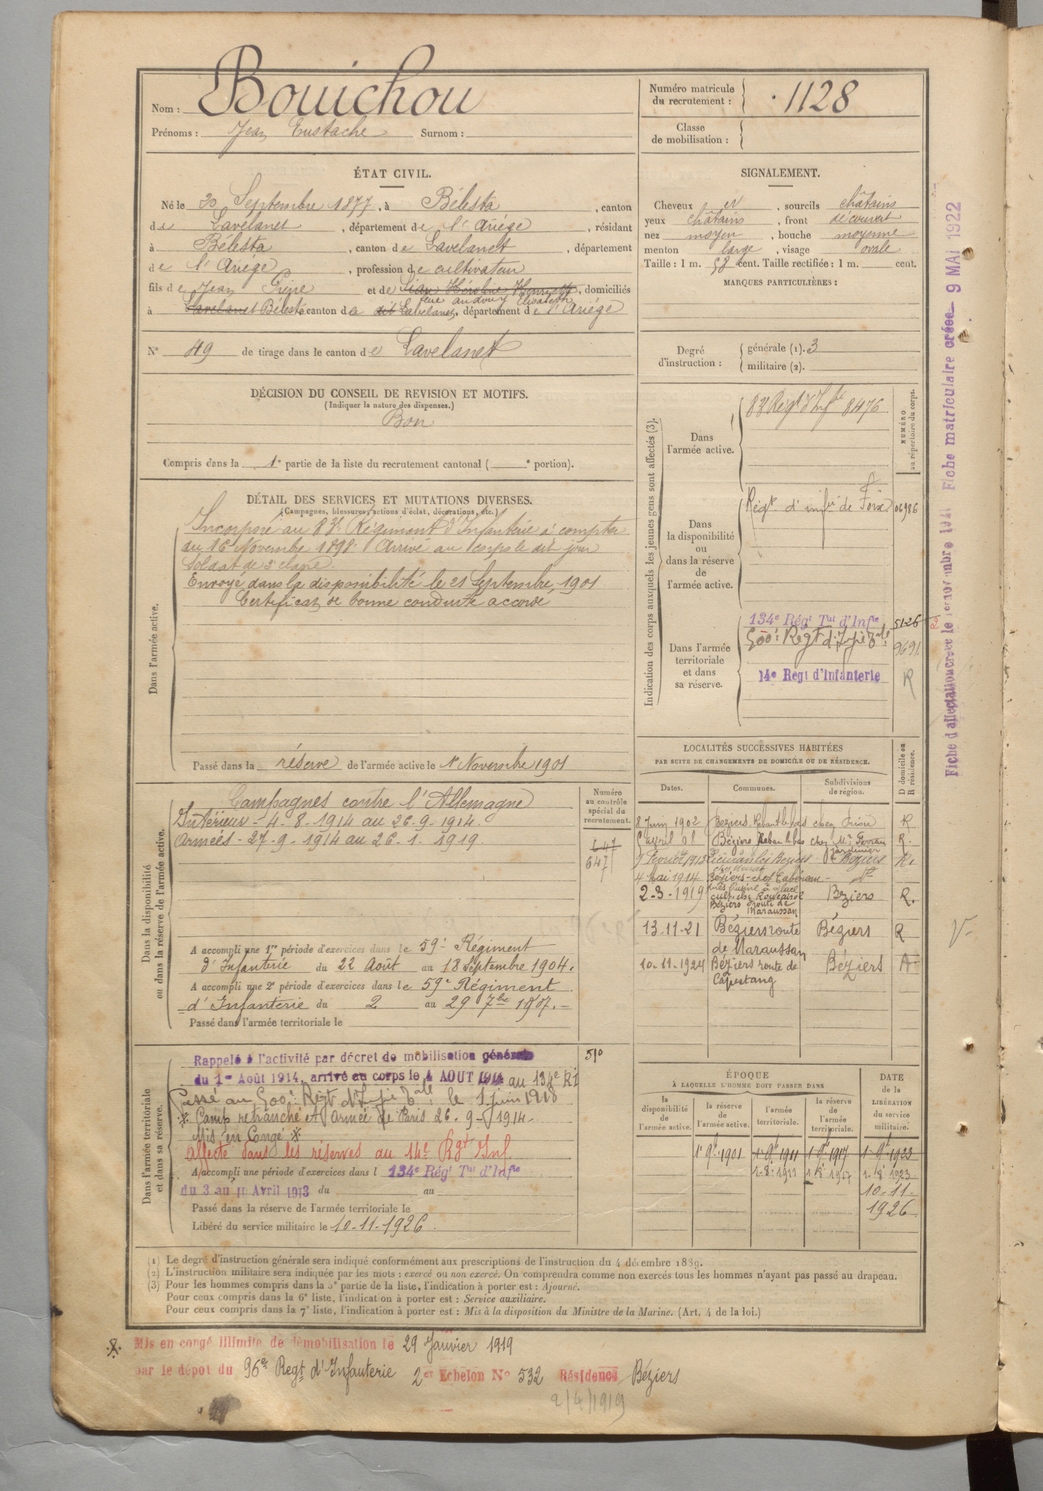 Nom : Bouichou
Prénoms : Jean Eustache Surnom :
Numéro matricule du recrutement : 1128
Classe de mobilisation :
ÉTAT CIVIL.
Né le 20 Septembre 1877, à Bélesta, canton
de Lavelanet, département de l'Ariége, résidant
à Bélesta, canton de Lavelanet, département
de l'Ariége, profession de cultivateur
fils de Jean Pierre et de , domiciliés
feue Elisabeth
à Lavelanet Bélesta canton de Lavelanet, département de l'Ariége
N° 49 de tirage dans le canton de Lavelanet
SIGNALEMENT.
Cheveux et, sourcils châtains
yeux châtains, front découvert
nez moyen, bouche moyenne
menton large, visage ovale
Taille : 1 m. 58 cent. Taille rectifiée : 1 m. cent.
MARQUES PARTICULIÈRES :
Degré d'instruction : générale (1). 3
militaire (2).
DÉCISION DU CONSEIL DE REVISION ET MOTIFS.
(Indiquer la nature des dispenses.)
Bon
Compris dans la 1e partie de la liste du recrutement cantonal ( e portion).
DÉTAIL DES SERVICES ET MUTATIONS DIVERSES.
(Campagnes, blessures, actions d'éclat, décorations, etc.)
Dans l'armée active.
Incorporé au 83e Régiment d'Infanterie à compter
du 16 Novembre 1898. Arrivé au corps le dit jour
Soldat de 2e classe
Envoyé dans la disponibilité le 21 Septembre 1901
Certificat de bonne conduite accordé
Passé dans la réserve de l'armée active le 1er Novembre 1901
Indication des corps auxquels les jeunes gens sont affectés (3).
NUMÉRO au répertoire du corps.
Dans l'armée active.
83 Regt d'Infie 8476
Dans la disponibilité ou dans la réserve de l'armée active.
Régt d'infie de Foix 06986
Dans l'armée territoriale et dans sa réserve.
134e Rég Tal d'Infie 5126
500e Regt d'Infie Tale 9691
14e Regt d'Infanterie R
Dans la disponibilité ou dans la réserve de l'armée active.
Campagnes contre l'Allemagne
Intérieur - 4.8.1914 au 26.9.1914.
Armées - 27.9.1914 au 26.1.1919.
Numéro au contrôle spécial du recrutement.
647
647
A accompli une 1re période d'exercices dans le 59e Régiment
d'Infanterie du 22 Août au 18 Septembre 1904.
A accompli une 2e période d'exercices dans le 59e Régiment
d'Infanterie du 2 au 29 7bre 1907.
Passé dans l'armée territoriale le
LOCALITÉS SUCCESSIVES HABITÉES
PAR SUITE DE CHANGEMENTS DE DOMICILE OU DE RÉSIDENCE.
Dates. Communes. Subdivisions de région. D domicile ou R résidence.
8 Juin 1902 Beziers R
Avril 08 Béziers R.
7 Février 1913 Beziers R.
4 mai 1914 Béziers chez
2-3-1919 Béziers route de Maraussan Béziers R.
13.11.21 Béziers route de Maraussan Béziers R
10-11-1924 Béziers route de Capestang Béziers
Dans l'armée territoriale et dans sa réserve.
Rappelé à l'activité par décret de mobilisation générale
du 1er Août 1914, arrivé au corps le 4 AOUT 1914 au 134e RI
510
Passé au 500e Régt d'Infie Tale le 1 juin 1918
* Camp retranché et Armée de Paris 26-9-1914.
Mis en Congé *
Affecté dans les réserves au 14e Rgt Inf
A accompli une période d'exercices dans l 134e Rég Tal d'Infie
du 3 au 11 Avril 1913 du au
Passé dans la réserve de l'armée territoriale le
Libéré du service militaire le 10-11-1926
ÉPOQUE À LAQUELLE L'HOMME DOIT PASSER DANS
DATE de la LIBÉRATION du service militaire.
la disponibilité de l'armée active. la réserve de l'armée active. l'armée territoriale. la réserve de l'armée territoriale.
1er 9bre 1901 1er 9bre 1911 1er 9bre 1917 1er 9bre 1923
10-11-1926
(1) Le degré d'instruction générale sera indiqué conformément aux prescriptions de l'instruction du 4 décembre 1889.
(2) L'instruction militaire sera indiquée par les mots : exercé ou non exercé. On comprendra comme non exercés tous les hommes n'ayant pas passé au drapeau.
(3) Pour les hommes compris dans la 5e partie de la liste, l'indication à porter est : Ajourné.
Pour ceux compris dans la 6e liste, l'indication à porter est : Service auxiliaire.
Pour ceux compris dans la 7e liste, l'indication à porter est : Mis à la disposition du Ministre de la Marine. (Art. 4 de la loi.)
Mis en congé illimité de démobilisation le 29 Janvier 1919
par le dépôt du 96e Regt d'Infanterie 2er Echelon No 532 Résidence Béziers
2/4/1919
Fiche matriculaire créée 9 MAI 1922